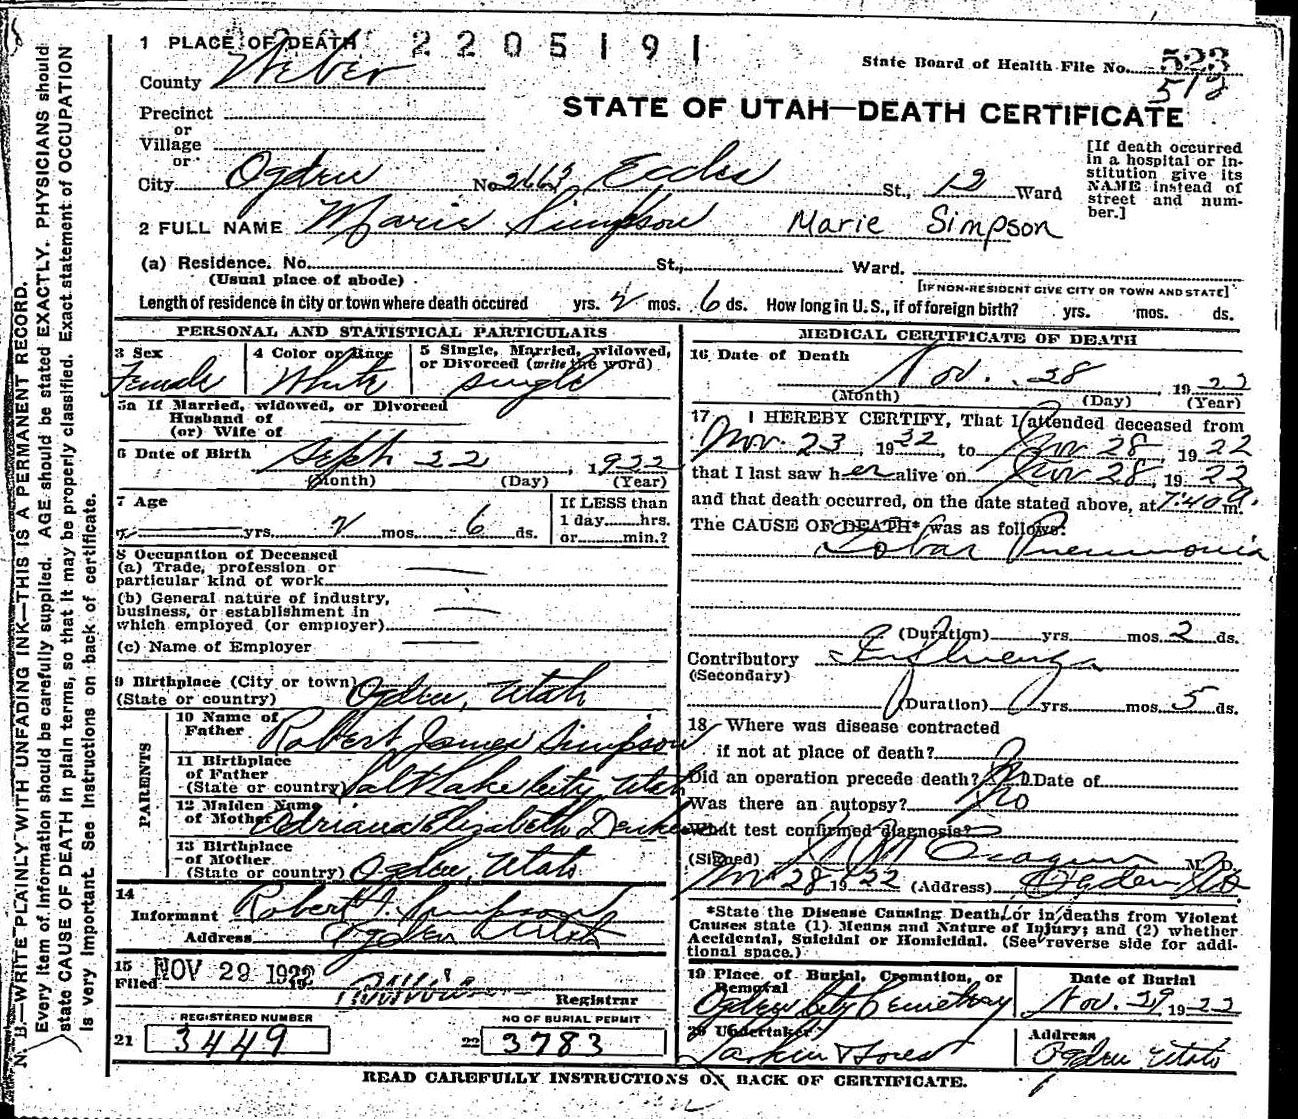 N. B.—WRITE PLAINLY WITH UNFADING INK—THIS IS A PERMANENT RECORD.
Every item of information should be carefully supplied. AGE should be stated EXACTLY. PHYSICIANS should
state CAUSE OF DEATH in plain terms, so that it may be properly classified. Exact statement of OCCUPATION
is very important. See Instructions on back of certificate.
1 PLACE OF DEATH 2205191
County Weber
State Board of Health File No. 523
512
STATE OF UTAH—DEATH CERTIFICATE
Precinct
or
Village
or
City Ogden No. 2663 Eccles St., 12 Ward
[If death occurred
in a hospital or in-
stitution give its
NAME instead of
street and num-
ber.]
2 FULL NAME Marie Simpson Marie Simpson
(a) Residence. No. St., Ward.
(Usual place of abode)
[IF NON-RESIDENT GIVE CITY OR TOWN AND STATE]
Length of residence in city or town where death occured yrs. 2 mos. 6 ds. How long in U.S., if of foreign birth? yrs. mos. ds.
PERSONAL AND STATISTICAL PARTICULARS
3 Sex
Female
4 Color or Race
White
5 Single, Married, widowed,
or Divorced (write the word)
Single
5a If Married, widowed, or Divorced
Husband of
(or) Wife of
6 Date of Birth Sept 22, 1922
(Month) (Day) (Year)
7 Age
yrs. 2 mos. 6 ds.
If LESS than
1 day hrs.
or min.?
8 Occupation of Deceased
(a) Trade, profession or
particular kind of work
(b) General nature of industry,
business, or establishment in
which employed (or employer)
(c) Name of Employer
9 Birthplace (City or town)
(State or country) Ogden, Utah
PARENTS
10 Name of
Father Robert James Simpson
11 Birthplace
of Father
(State or country) Salt Lake City, Utah
12 Maiden Name
of Mother Adriana Elizabeth
13 Birthplace
of Mother
(State or country) Ogden, Utah
14
Informant Robert J. Simpson
Address Ogden Utah
15
Filed NOV 29 1922
Registrar
REGISTERED NUMBER
21 3449
NO OF BURIAL PERMIT
22 3783
MEDICAL CERTIFICATE OF DEATH
16 Date of Death
Nov. 28, 1922
(Month) (Day) (Year)
17 I HEREBY CERTIFY, That I attended deceased from
Nov. 23, 1922, to Nov 28, 1922
that I last saw her alive on Nov 28, 1922
and that death occurred, on the date stated above, at 7:40 a. m.
The CAUSE OF DEATH* was as follows:
Lobar Pneumonia
(Duration) yrs. mos. 2 ds.
Contributory Influenza
(Secondary)
(Duration) yrs. mos. 5 ds.
18 Where was disease contracted
if not at place of death?
Did an operation precede death? No Date of
Was there an autopsy? No
What test confirmed diagnosis?
(Signed) M. D.
Nov 28 1922 (Address) Ogden
*State the Disease Causing Death, or in deaths from Violent
Causes state (1) Means and Nature of Injury; and (2) whether
Accidental, Suicidal or Homicidal. (See reverse side for addi-
tional space.)
19 Place of Burial, Cremation, or
Removal
Ogden City Cemetery
Date of Burial
Nov. 29 1922
20 Undertaker
Larkin & Sons
Address
Ogden Utah
READ CAREFULLY INSTRUCTIONS ON BACK OF CERTIFICATE.